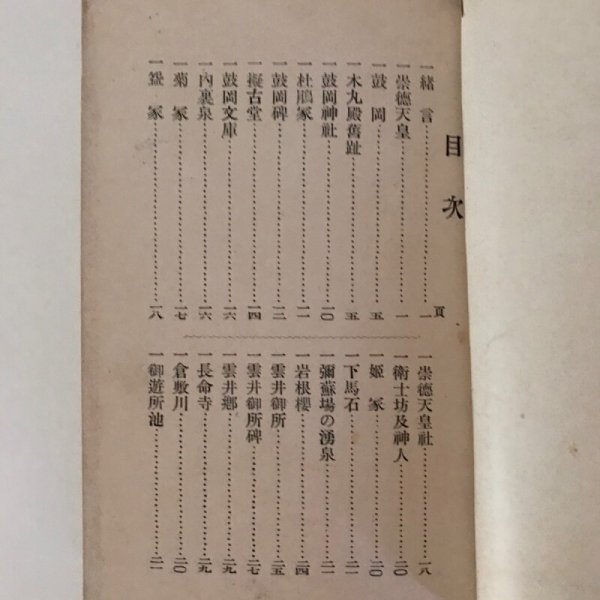 目次
頁
一緒言…………一
一崇德天皇…………一
一鼓岡…………五
一木丸殿舊趾…………五
一鼓岡神社…………一〇
一杜鵑冢…………一一
一鼓岡碑…………一二
一擬古堂…………一四
一鼓岡文庫…………一六
一內裏泉…………一六
一菊冢…………一七
一盌冢…………一八
一崇德天皇社…………一八
一衛士坊及神人…………二〇
一姬冢…………二〇
一下馬石…………二一
一彌蘇場の湧泉…………二一
一岩根櫻…………二四
一雲井御所…………二五
一雲井御所碑…………二七
一雲井鄕…………二九
一長命寺…………二九
一倉敷川…………三〇
一御遊所池…………三一